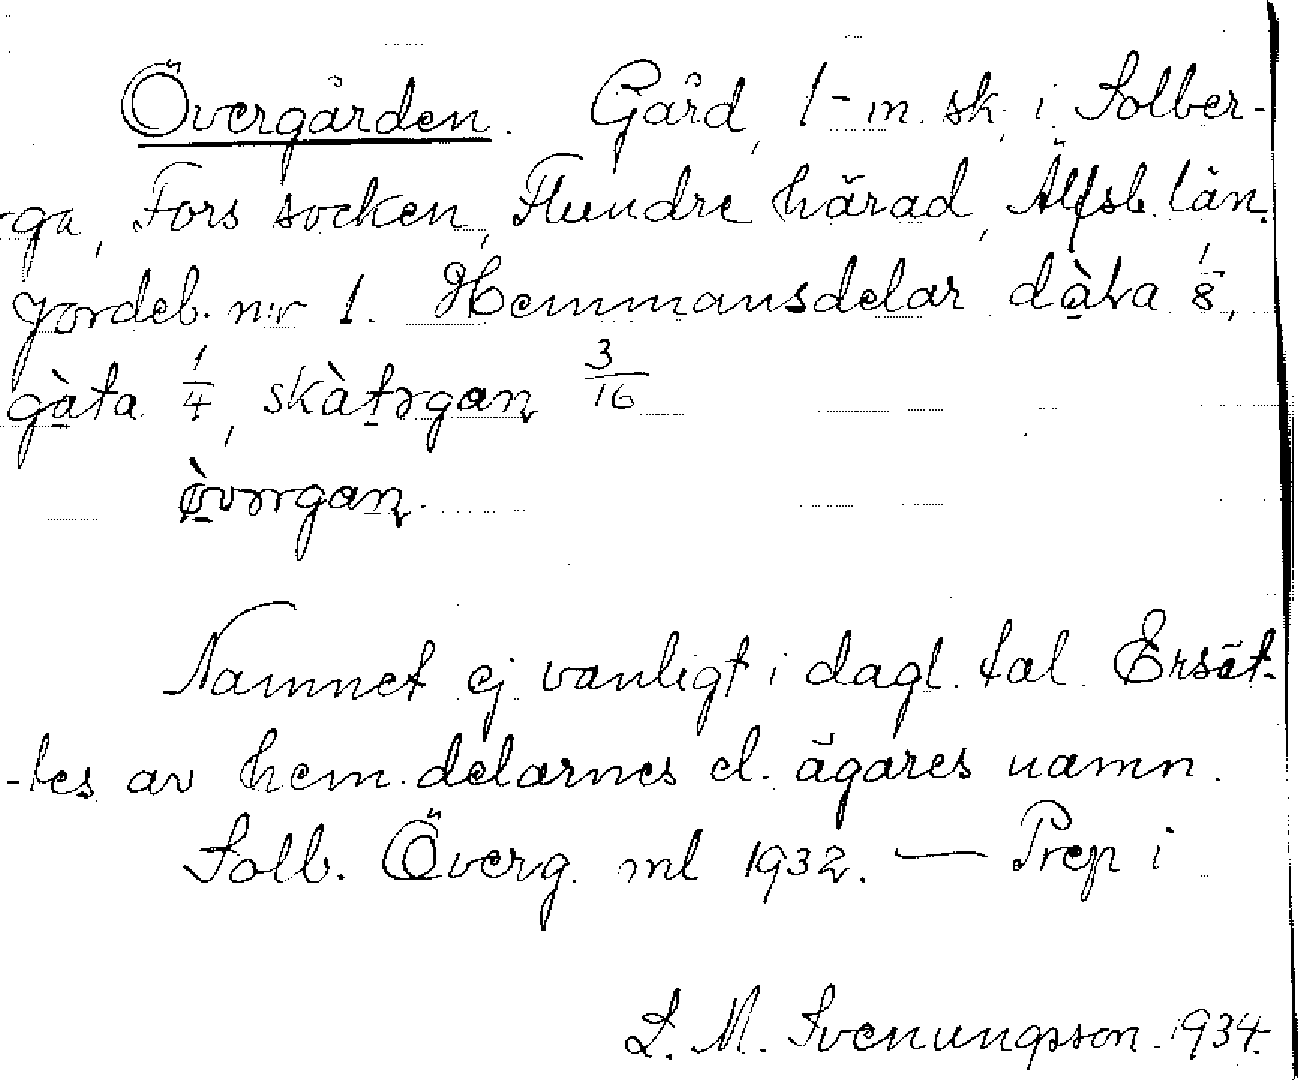 Övergården. Gård, 1-m. sk. i Solber-
-ga, Fors socken, Flundre härad, Älfsb. län.
Jordeb. n:r 1. Hemmansdelar dàta 1/8,
gàta 1/4, skàtərgan 3/16
òvərgan.
Namnet ej vanligt i dagl. tal. Ersät-
-tes av hem.delarnes el. ägares namn.
Solb. Överg. ml 1932. — Prep i
L. M. Svenungsson. 1934.